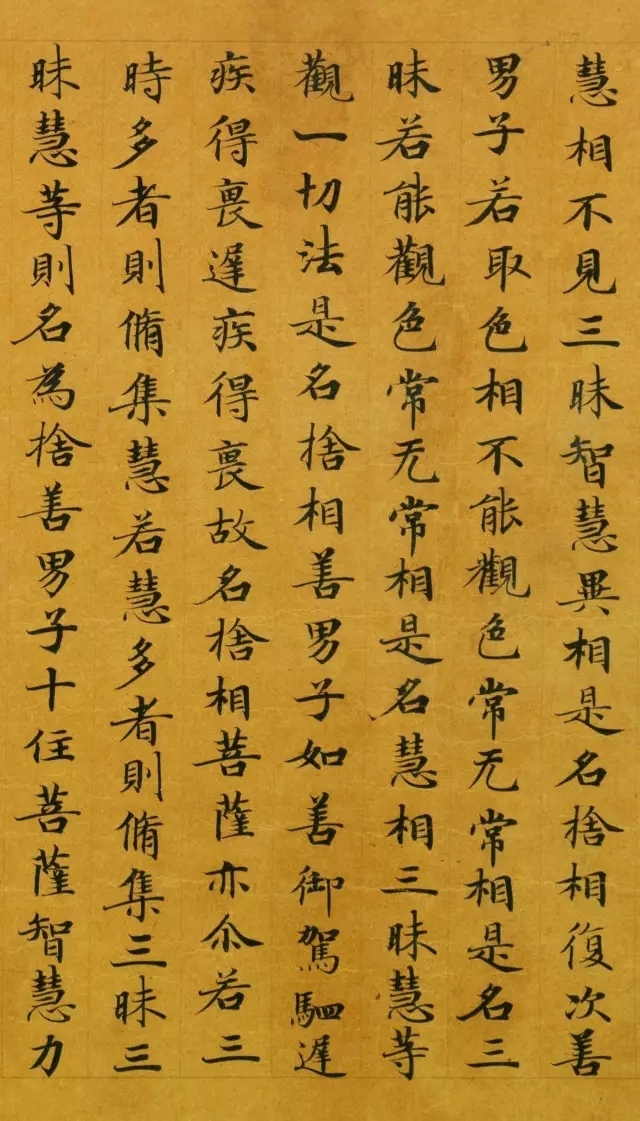 慧相不見三昧智慧異相是名捨相復次善
男子若取色相不能觀色常无常相是名三
昧若能觀色常无常相是名慧相三昧慧等
觀一切法是名捨相善男子如善御駕駟遲
疾得㝵遲疾得㝵故名捨相菩薩亦尒若三
時多者則脩集慧若慧多者則脩集三昧三
昧慧等則名為捨善男子十住菩薩智慧力